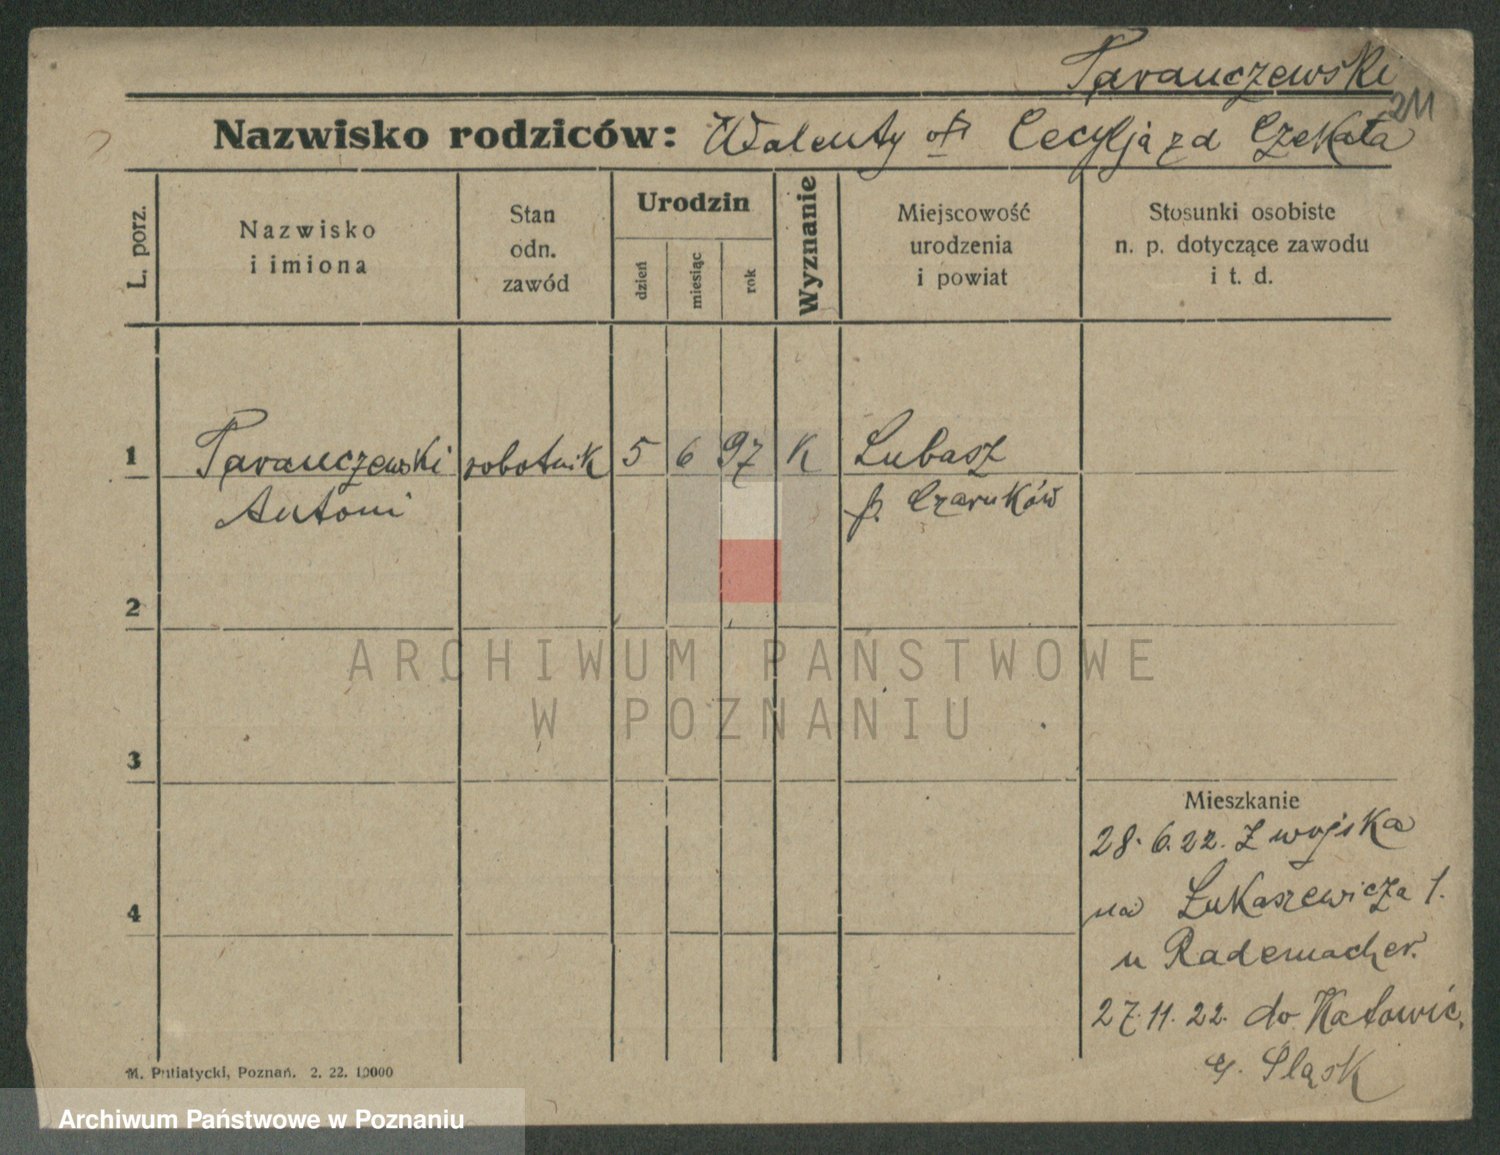 Taranczewski
211
Nazwisko rodziców: Walenty i Cecylja zd Czekała
L. porz.
Nazwisko
i imiona
Stan
odn.
zawód
Urodzin
dzień
miesiąc
rok
Wyznanie
Miejscowość
urodzenia
i powiat
Stosunki osobiste
n. p. dotyczące zawodu
i t. d.
1 Taranczewski robotnik 5 6 97 K Lubasz
Antoni p. Czarnków
2
ARCHIWUM PAŃSTWOWE
W POZNANIU
3
Mieszkanie
28.6.22. Z wojska
4
na Łukaszewicza 1.
u Rademacher.
27.11.22. do Katowic.
G. Śląsk
M. Putiatycki, Poznań. 2. 22. 10000
Archiwum Państwowe w Poznaniu